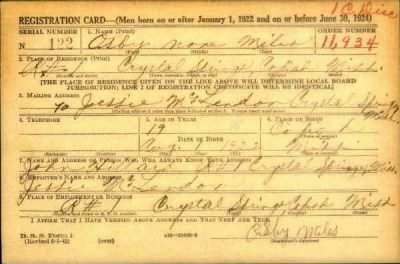 1 C Disc
REGISTRATION CARD—(Men born on or after January 1, 1922 and on or before June 30, 1924)
SERIAL NUMBER 1. NAME (Print) ORDER NUMBER
N 122 Asby none Miles 11,934
(First) (Middle) (Last)
2. PLACE OF RESIDENCE (Print)
Crystal Springs Copiah Miss.
[THE PLACE OF RESIDENCE GIVEN ON THE LINE ABOVE WILL DETERMINE LOCAL BOARD
JURISDICTION; LINE 2 OF REGISTRATION CERTIFICATE WILL BE IDENTICAL]
3. MAILING ADDRESS
Jessie McLendon Crystal Springs Miss
4. TELEPHONE 5. AGE IN YEARS 6. PLACE OF BIRTH
19
DATE OF BIRTH
7. NAME AND ADDRESS OF PERSON WHO WILL ALWAYS KNOW YOUR ADDRESS
Crystal Springs, Miss.
8. EMPLOYER'S NAME AND ADDRESS
Jessie McLendon
9. PLACE OF EMPLOYMENT OR BUSINESS
R# 1 Crystal Springs Copiah Miss
I AFFIRM THAT I HAVE VERIFIED ABOVE ANSWERS AND THAT THEY ARE TRUE.
D. S. S. Form 1
(Revised 6-1-42)
Asby Miles
(Registrant's signature)